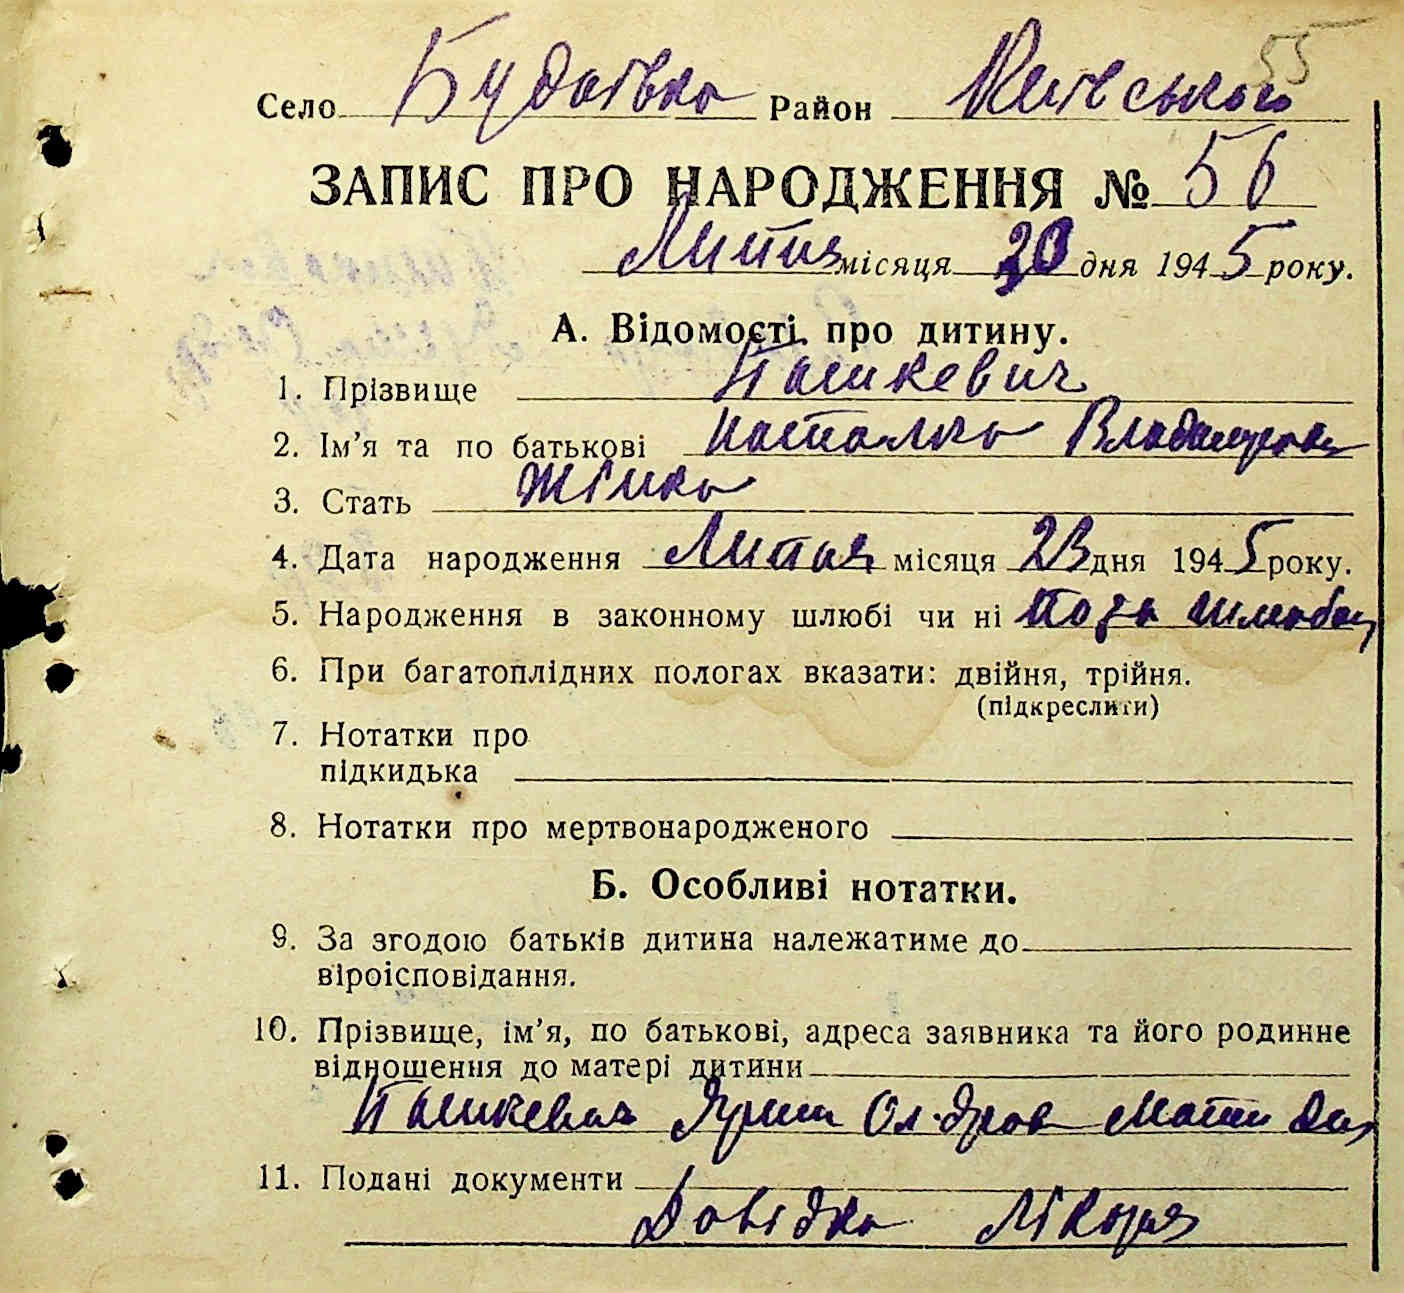 55
Село Будаївка Район Київського
ЗАПИС ПРО НАРОДЖЕННЯ № 56
Липня місяця 30 дня 1945 року.
А. Відомості про дитину.
1. Прізвище Пашкевич
2. Ім'я та по батькові Наталка Владимировн
3. Стать жінка
4. Дата народження Липня місяця 23 дня 1945 року.
5. Народження в законному шлюбі чи ні Поза шлюбом
6. При багатоплідних пологах вказати: двійня, трійня.
(підкреслити)
7. Нотатки про
підкидька
8. Нотатки про мертвонародженого
Б. Особливі нотатки.
9. За згодою батьків дитина належатиме до
віроісповідання.
10. Прізвище, ім'я, по батькові, адреса заявника та його родинне
відношення до матері дитини
Пашкевич Ярина Ол-дров Мати
11. Подані документи
Довідка Лікаря